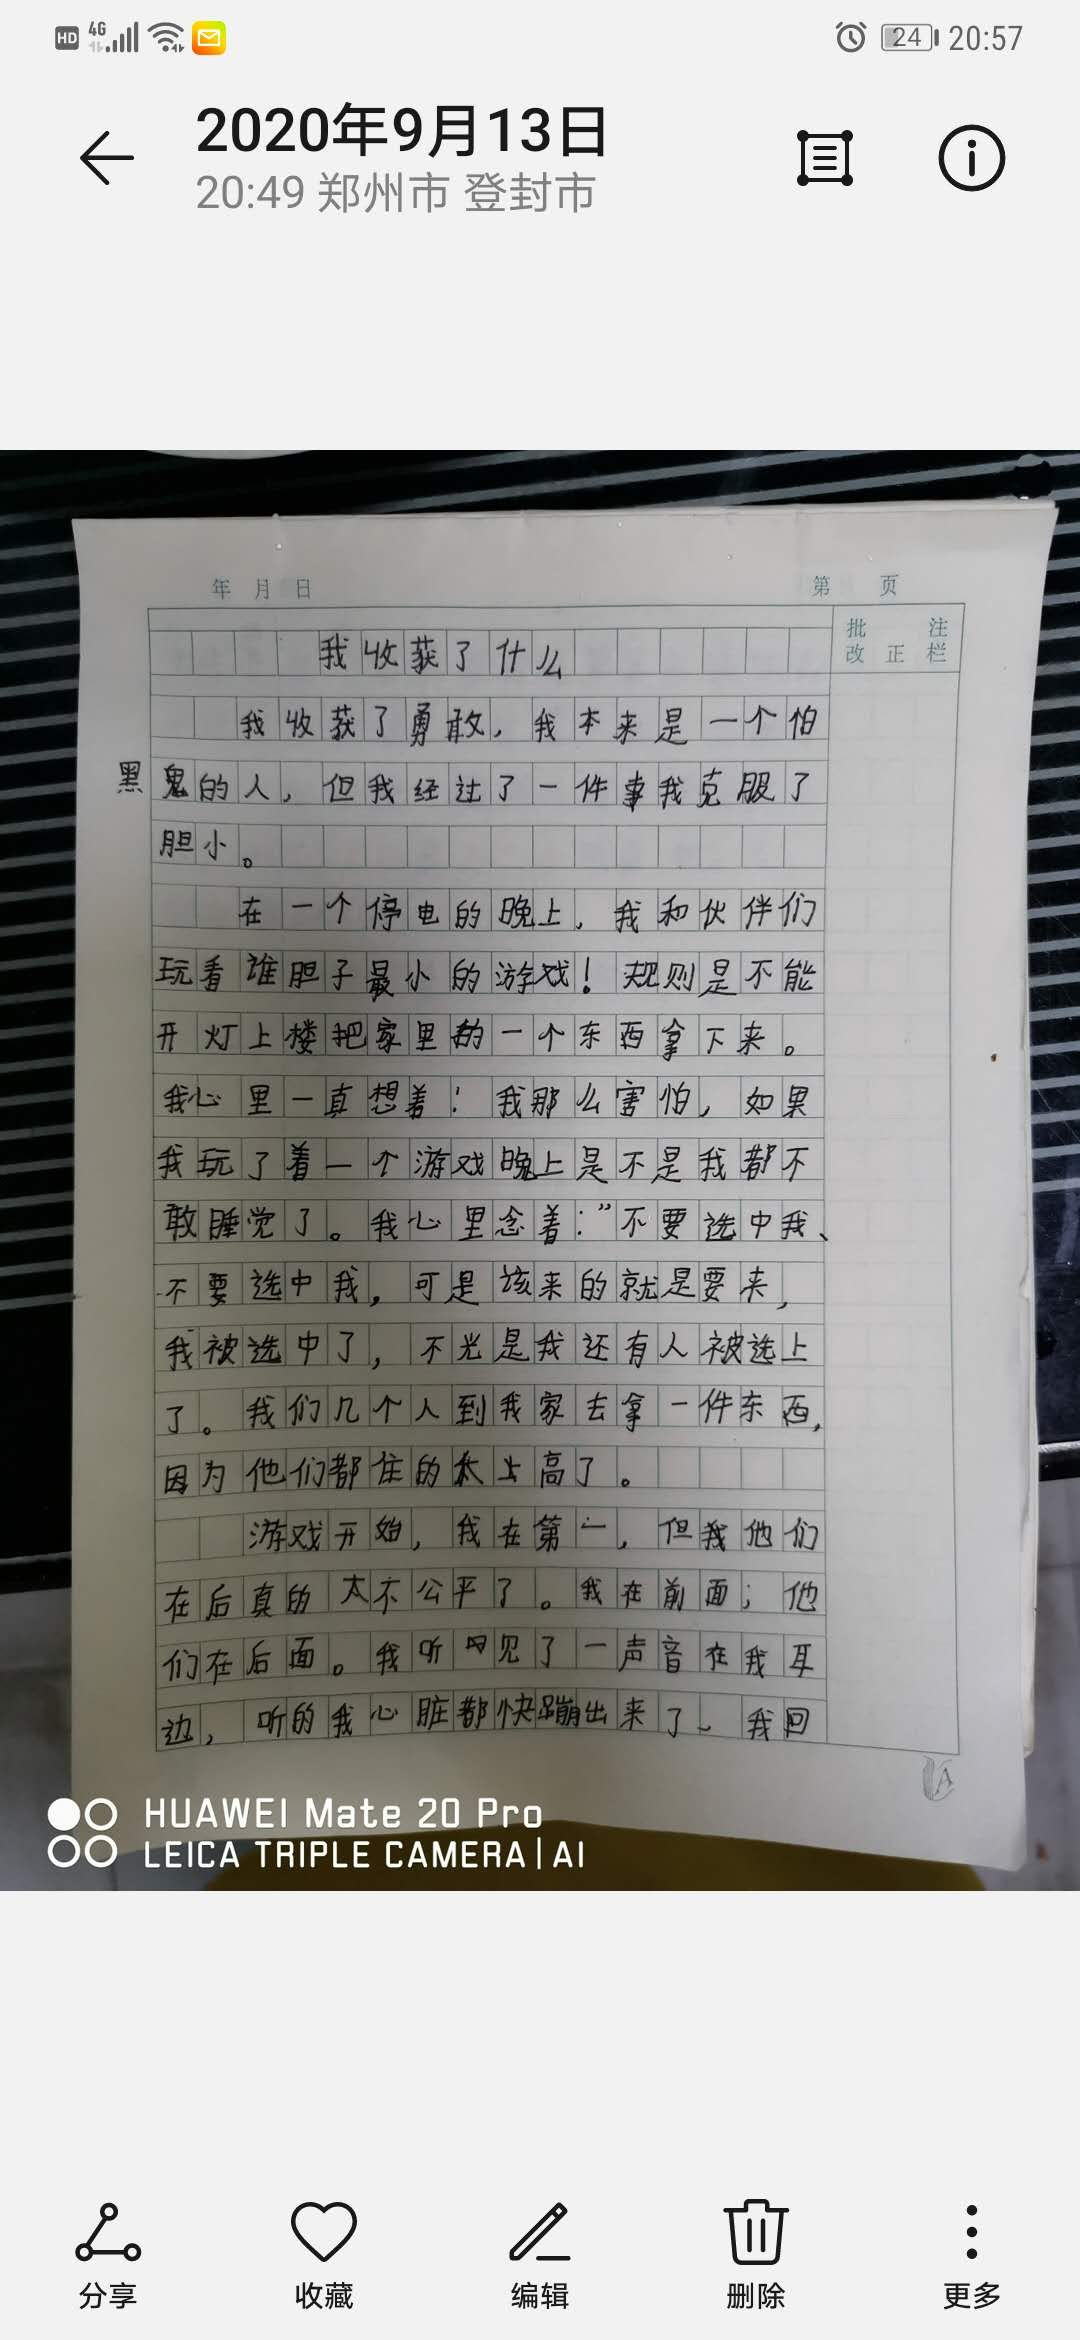 HD 4G 24 20:57
2020年9月13日
20:49 郑州市 登封市
年 月 日 第 页
批 注
改 正 栏
我收获了什么
我收获了勇敢，我本来是一个怕
黑鬼的人，但我经过了一件事我克服了
胆小。
在一个停电的晚上，我和伙伴们
玩看谁胆子最小的游戏！规则是不能
开灯上楼把家里的一个东西拿下来。
我心里一直想着：我那么害怕，如果
我玩了着一个游戏晚上是不是我都不
敢睡觉了。我心里念着：”不要选中我、
不要选中我，可是该来的就是要来，
我被选中了，不光是我还有人被选上
了。我们几个人到我家去拿一件东西，
因为他们都住的太高了。
游戏开始，我在第一，但我他们
在后真的太不公平了。我在前面；他
们在后面。我听见了一声音在我耳
边，听的我心脏都快蹦出来了、我回
HUAWEI Mate 20 Pro
LEICA TRIPLE CAMERA | AI
分享 收藏 编辑 删除 更多